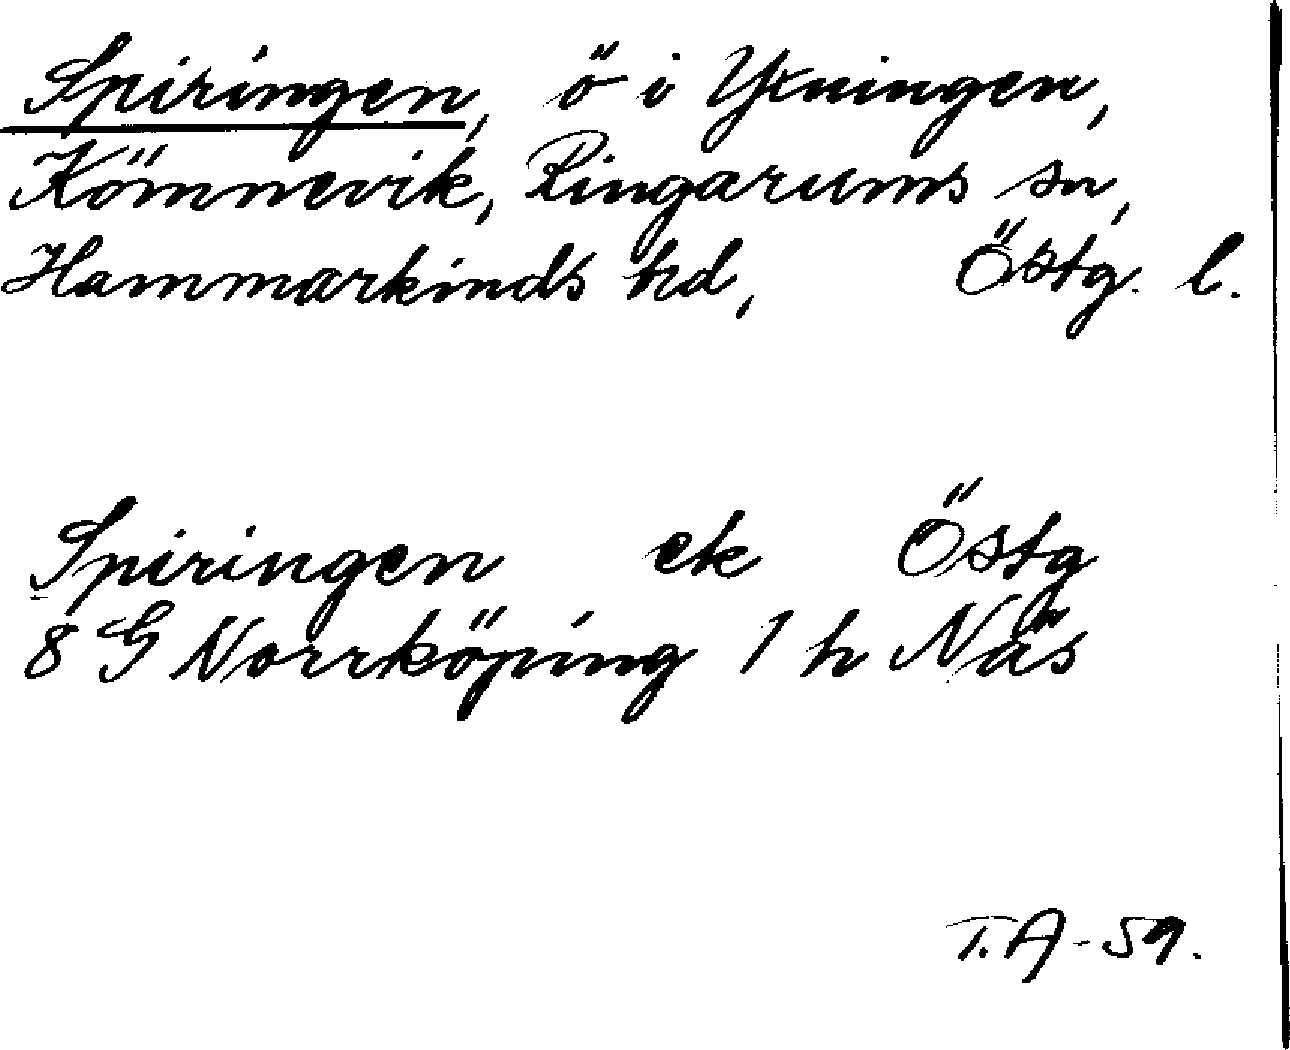 Spiringen, ö i Yxningen,
Kömnevik, Ringarums sn,
Hammarkinds hd, Östg. l.
Spiringen ek Östg
8 G Norrköping 1 h Näs
T.A-59.